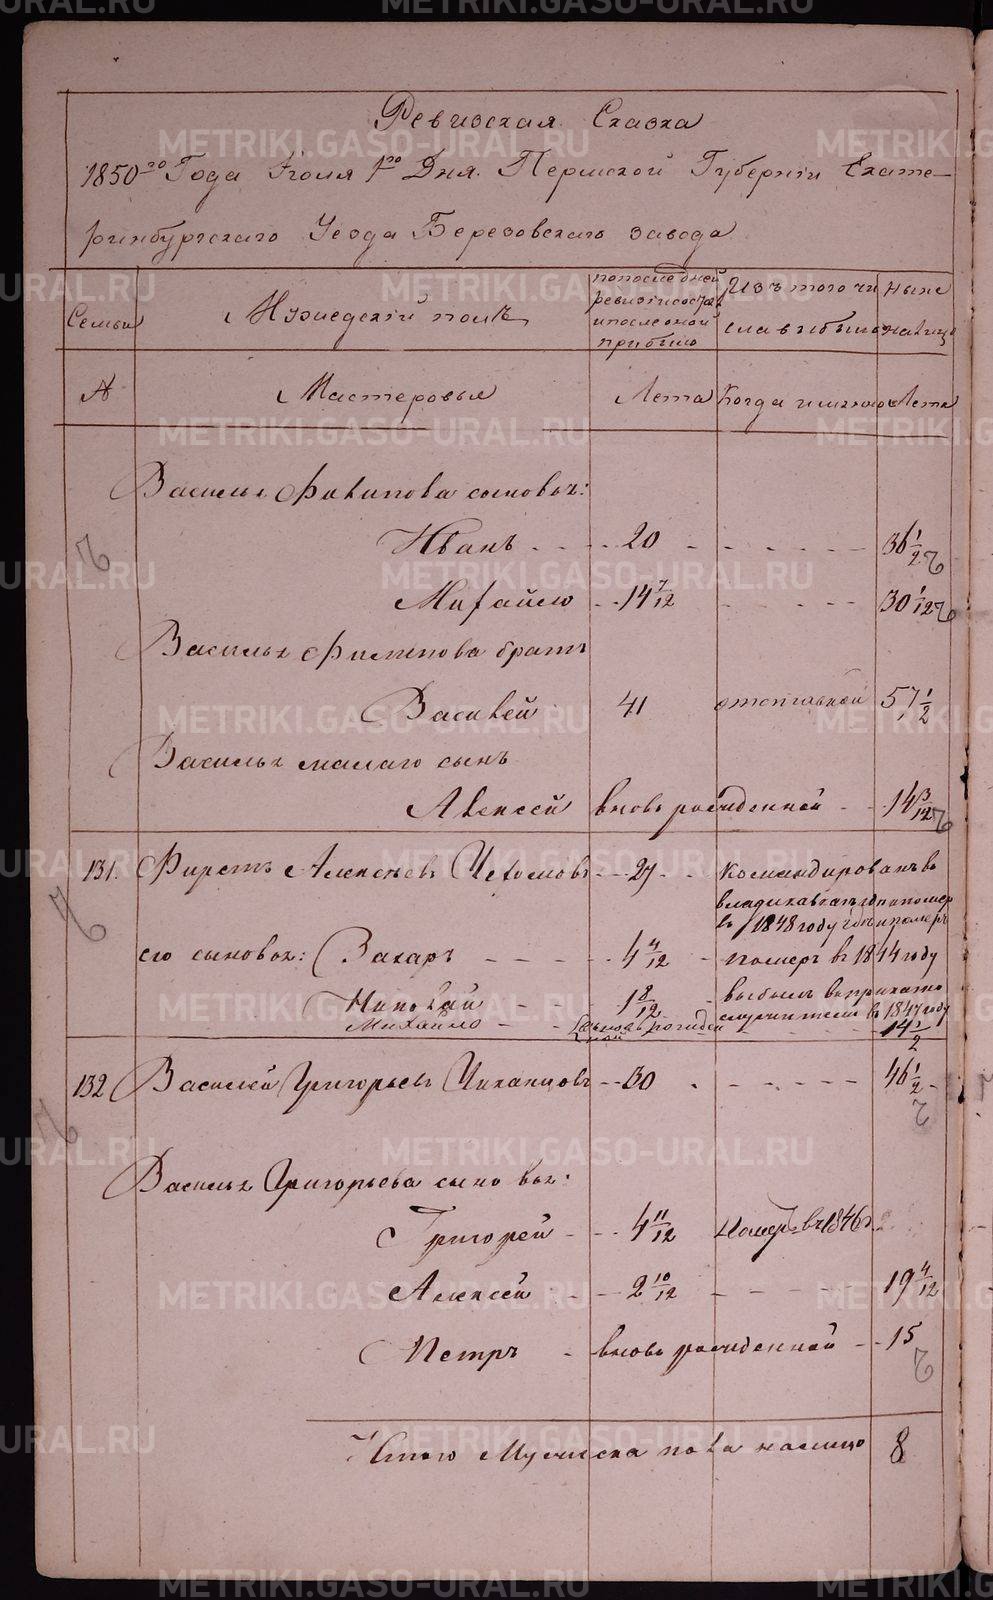 Ревизская Сказка
1850го Года Июля 1го Дня. Пермской Губернiи Екате-
ринбургскаго Уезда Березовскаго завода
Семьи
Мужедскiй полъ
попоследней
ревизiисостоя
ипослеоной
прибыло
Изъ того чи
сла выбыло
ныне
налицо
№
Мастеровыя
Лета
Когда именно
Лета
Василья Филипова сыновья:
Иванъ - - - 20 - - - - - - 36 1/2
Михайло - - 14 7/12 - - - 30 1/12
Василья Филипова братъ
Василей 41 отставной 57 1/2
Василья малаго сынъ
Алексей вновь рожденной - - 14 3/12
131. Фирстъ Алексеевъ - - 27 - - Командированъ въ
владикавказъ
въ 1848 году
его сыновья: Захаръ - - - - - 4 4/12 - померъ въ 1844 году
Николай - - - 1 8/12 - выбылъ
въ 1847 году
Михайло - - вновь рожден
ной - - - 14 1/2
132 Василей Григорьевъ - - 30 - - - - - 46 1/2
Василья Григорьева сыновья:
Григорей - - 4 11/12 Померъ въ 1846г.
Алексей - - 2 10/12 - - - - 19 4/12
Петръ - вновь рожденной - - 15
Итого Мужеска пола налицо 8
METRIKI.GASO-URAL.RU